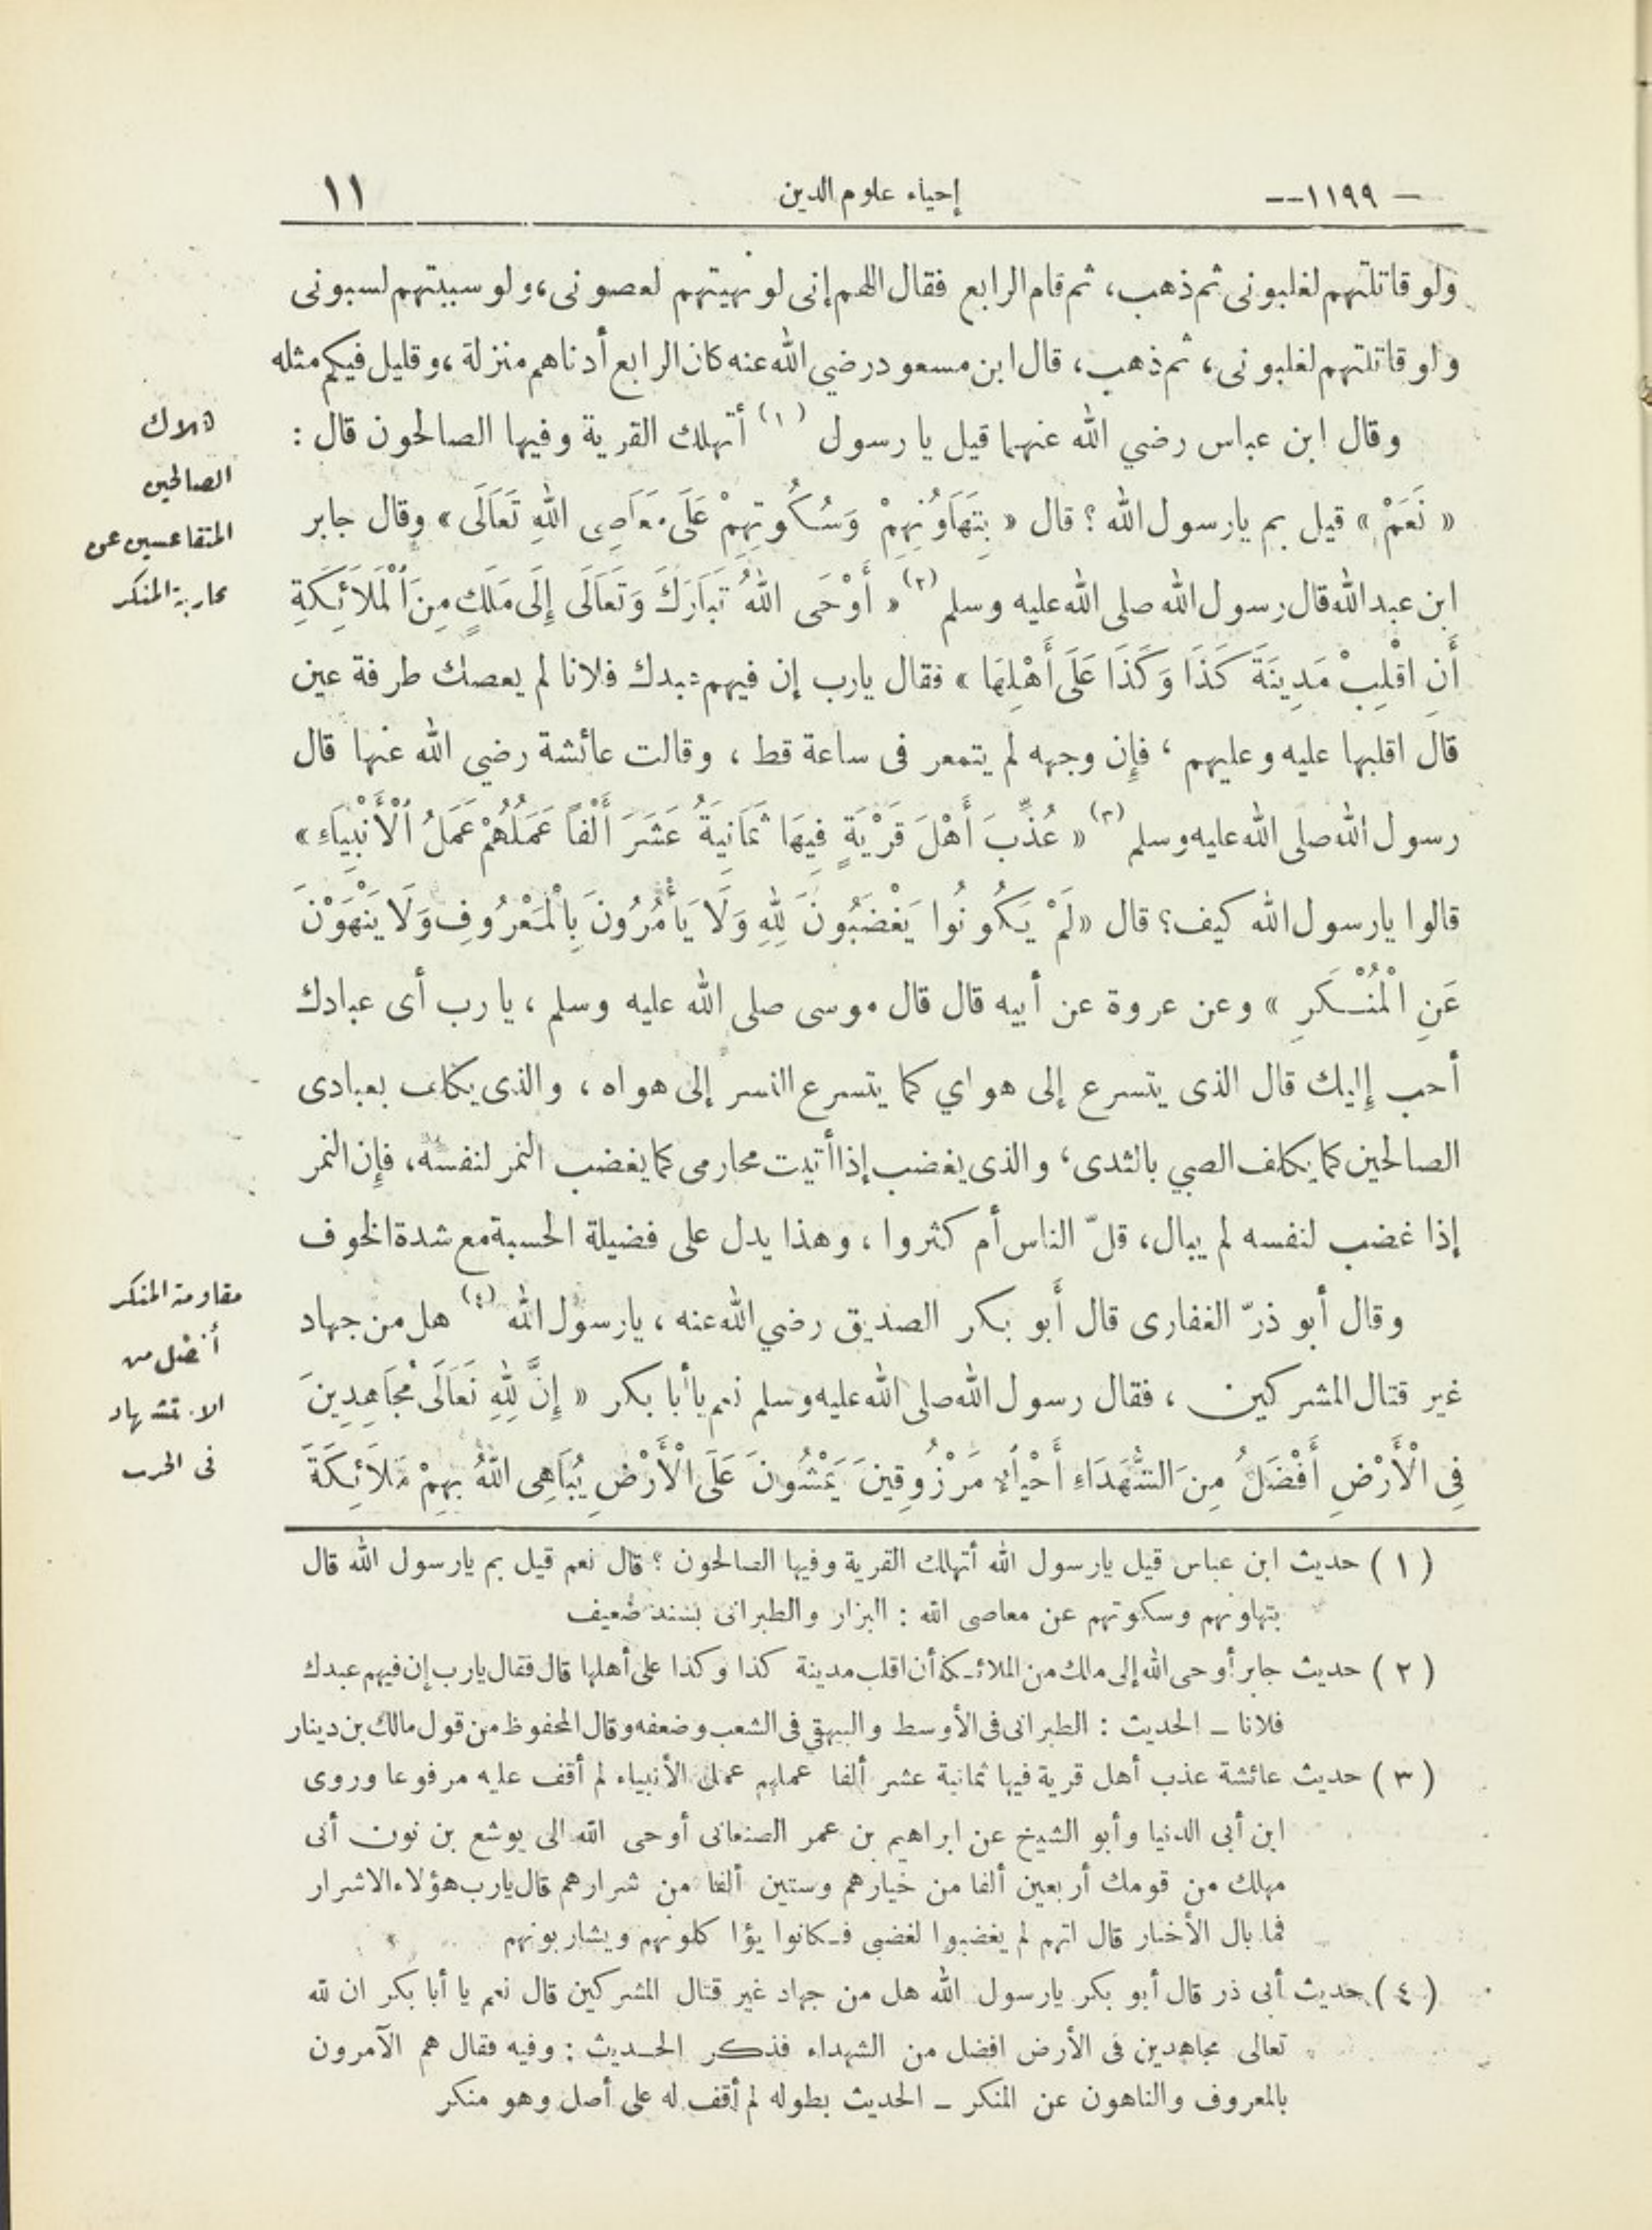 — ١١٩٩ —– إحياء علوم الدين ١١
ولو قاتلتهم لغلبونى ثم ذهب، ثم قام الرابع فقال اللهم إنى لو نهيتهم لعصونى، ولو سببتهم لسبونى
ولو قاتلتهم لغلبونى، ثم ذهب، قال ابن مسعود رضي الله عنه كان الرابع أدناهم منزلة، وقليل فيكم مثله
وقال ابن عباس رضي الله عنهما قيل يا رسول (١) أتهلك القرية وفيها الصالحون قال :
« نَعَمْ » قيل بم يارسول الله ؟ قال « بِتَهَاوُنِهِمْ وَسُكُوتِهِمْ عَلَى مَعَاصِى اللهِ تَعَالَى » وقال جابر
ابن عبد الله قال رسول الله صلى الله عليه وسلم (٢) « أَوْحَى اللهُ تَبَارَكَ وَتَعَالَى إِلَى مَلَكٍ مِنَ الْمَلَائِكَةِ
أَنِ اقْلِبْ مَدِينَةَ كَذَا وَكَذَا عَلَى أَهْلِهَا » فقال يارب إن فيهم عبدك فلانا لم يعصك طرفة عين
قال اقلبها عليه وعليهم ، فإن وجهه لم يتمعر فى ساعة قط ، وقالت عائشة رضي الله عنها قال
رسول الله صلى الله عليه وسلم (٣) « عُذِّبَ أَهْلَ قَرْيَةٍ فِيهَا ثَمَانِيَةُ عَشَرَ أَلْفاً عَمَلُهُمْ عَمَلُ الْأَنْبِيَاءِ »
قالوا يارسول الله كيف؟ قال «لَمْ يَكُونُوا يَغْضَبُونَ لِلهِ وَلَا يَأْمُرُونَ بِالْمَعْرُوفِ وَلَا يَنْهَوْنَ
عَنِ الْمُنْكَرِ » وعن عروة عن أبيه قال قال موسى صلى الله عليه وسلم ، يا رب أى عبادك
أحب إليك قال الذى يتسرع إلى هواي كما يتسرع النسر إلى هواه ، والذى يكلف بعبادى
الصالحين كما يكلف الصبي بالثدى، والذى يغضب إذا أتيت محارمى كما يغضب النمر لنفسه، فإن النمر
إذا غضب لنفسه لم يبال، قلّ الناس أم كثروا ، وهذا يدل على فضيلة الحسبة مع شدة الخوف
وقال أبو ذرّ الغفارى قال أبو بكر الصديق رضي الله عنه ، يارسول الله (٤) هل من جهاد
غير قتال المشركين ، فقال رسول الله صلى الله عليه وسلم نعم يا أبا بكر « إِنَّ لِلهِ تَعَالَى مُجَاهِدِينَ
فِى الْأَرْضِ أَفْضَلُ مِنَ الشُّهَدَاءِ أَحْيَاءٌ مَرْزُوقِينَ يَمْشُونَ عَلَى الْأَرْضِ يُبَاهِى اللهُ بِهِمْ مَلَائِكَةَ
هلاك
الصالحين
المتقاعسين عن
محاربة المنكر
مقاومة المنكر
أفضل من
الاستشهاد
فى الحرب
( ١ ) حديث ابن عباس قيل يارسول الله أتهلك القرية وفيها الصالحون ؟ قال نعم قيل بم يارسول الله قال
بتهاونهم وسكوتهم عن معاصى الله : البزار والطبرانى بسند ضعيف
( ٢ ) حديث جابر أوحى الله إلى ملك من الملائكة أن اقلب مدينة كذا وكذا على أهلها قال فقال يارب إن فيهم عبدك
فلانا ـ الحديث : الطبرانى فى الأوسط والبيهقى فى الشعب وضعفه وقال المحفوظ من قول مالك بن دينار
( ٣ ) حديث عائشة عذب أهل قرية فيها ثمانية عشر ألفا عملهم عمل الأنبياء لم أقف عليه مرفوعا وروى
ابن أبى الدنيا وأبو الشيخ عن ابراهيم بن عمر الصنعانى أوحى الله الى يوشع بن نون أنى
مهلك من قومك أربعين ألفا من خيارهم وستين ألفا من شرارهم قال يارب هؤلاء الاشرار
فما بال الأخيار قال انهم لم يغضبوا لغضبى فكانوا يؤاكلونهم ويشاربونهم
( ٤ ) حديث أبى ذر قال أبو بكر يارسول الله هل من جهاد غير قتال المشركين قال نعم يا أبا بكر ان لله
تعالى مجاهدين فى الأرض افضل من الشهداء فذكر الحديث : وفيه فقال هم الآمرون
بالمعروف والناهون عن المنكر ـ الحديث بطوله لم أقف له على أصل وهو منكر